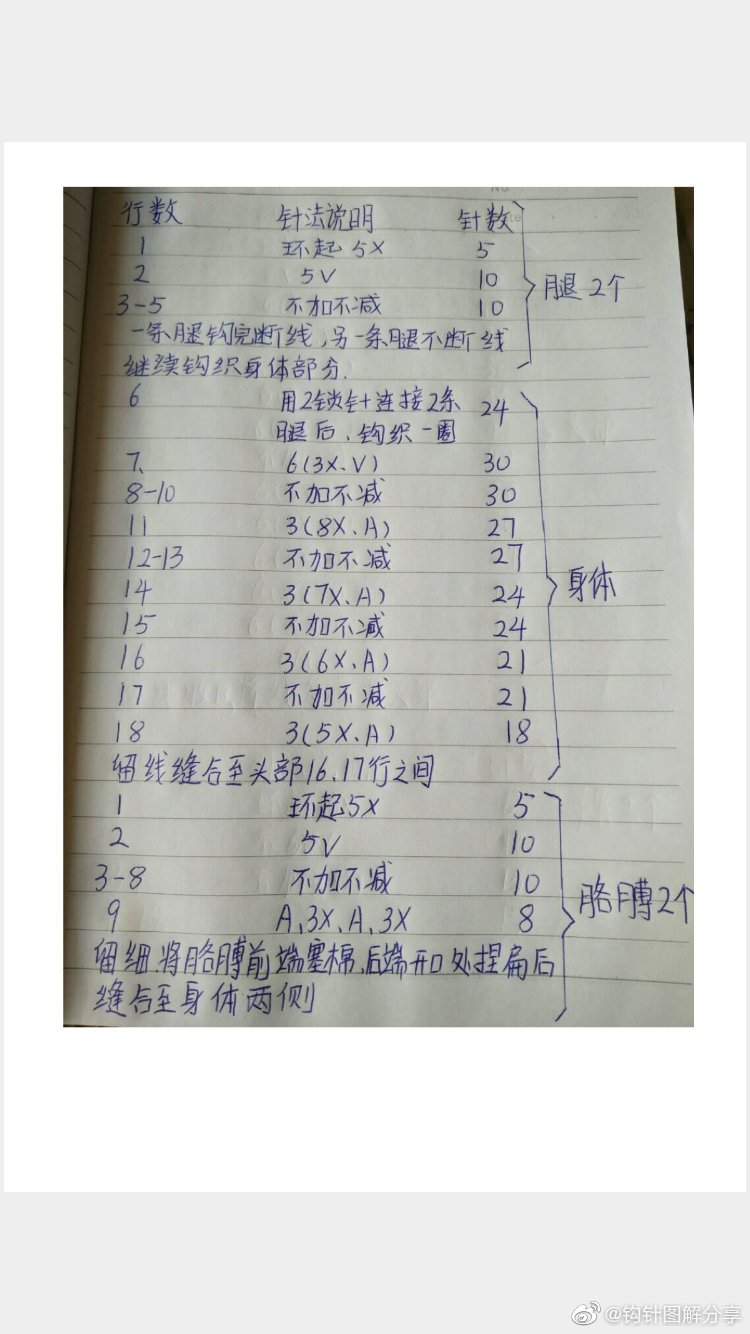 行数 针法说明 针数
1 环起5X 5
2 5V 10
3-5 不加不减 10
一条腿钩完断线,另一条腿不断线
继续钩织身体部分.
腿2个
6 用2锁针连接2条 24
腿后、钩织一圈
7、 6(3X、V) 30
8-10 不加不减 30
11 3(8X、A) 27
12-13 不加不减 27
14 3(7X、A) 24
15 不加不减 24
16 3(6X、A) 21
17 不加不减 21
18 3(5X、A) 18
留线缝合至头部16、17行之间
身体
1 环起5X 5
2 5V 10
3-8 不加不减 10
9 A、3X、A、3X 8
留细.将胳膊前端塞棉、后端开口处捏扁后
缝合至身体两侧
胳膊2个
@钩针图解分享